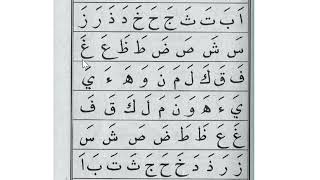 اَ بَ تَ ثَ جَ حَ خَ دَ ذَ رَ زَ
سَ شَ صَ ضَ طَ ظَ عَ غَ
فَ قَ كَ لَ مَ نَ وَ هَ ءَ يَ
يَ ءَ هَ وَ نَ مَ لَ كَ قَ فَ
غَ عَ ظَ طَ ضَ صَ شَ سَ
زَ رَ ذَ دَ خَ حَ جَ ثَ تَ بَ اَ